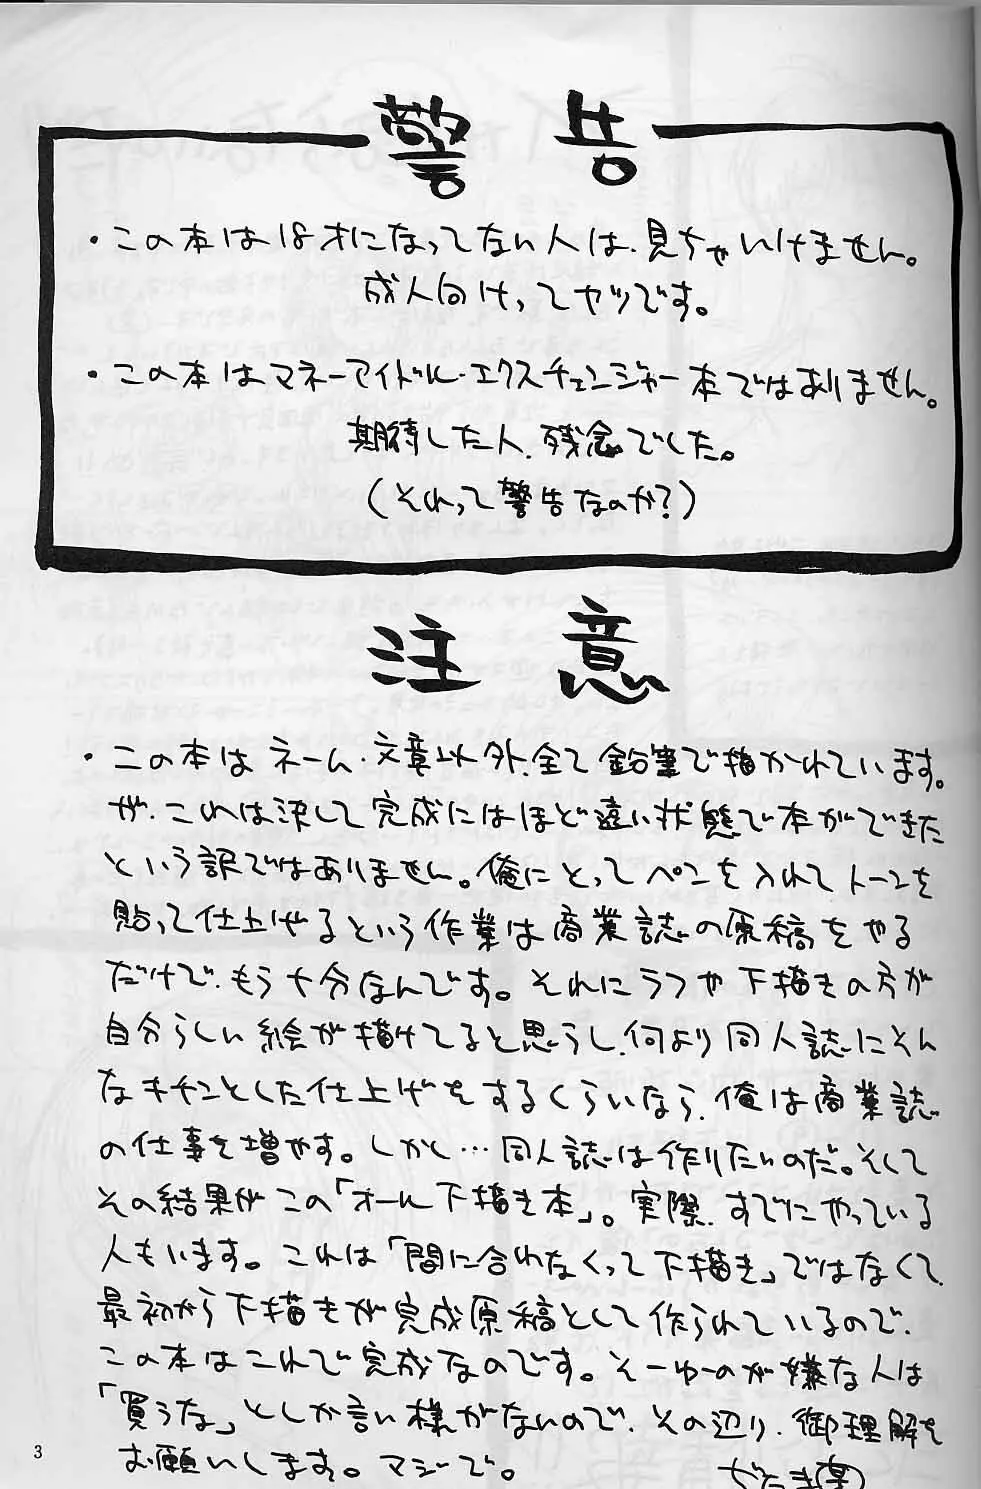 警告
・この本は18才になってない人は、見ちゃいけません。
成人向けってヤツです。
・この本はマネーアイドル・エクスチェンジャー本ではありません。
期待した人、残念でした。
（それって警告なのか？）
注意
・この本はネーム・文章以外、全て鉛筆で描かれています。
が、これは決して完成にはほど遠い状態で本ができた
という訳ではありません。俺にとってペンを入れてトーンを
貼って仕上げるという作業は商業誌の原稿をやる
だけで、もう十分なんです。それにラフや下描きの方が
自分らしい絵が描けてると思うし、何より同人誌にそん
なキチンとした仕上げをするくらいなら、俺は商業誌
の仕事を増やす。しかし…同人誌は作りたいのだ。そして
その結果がこの「オール下描き本」。実際、すでにやっている
人もいます。これは「間に合わなくって下描き」ではなくて、
最初から下描きが完成原稿として作られているので、
この本はこれで完成なのです。そーゆのが嫌な人は
「買うな」としか言い様がないので、その辺り、御理解を
お願いします。マジで。
3